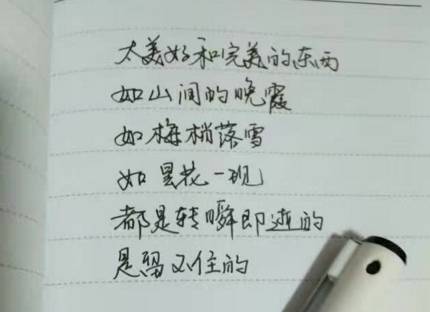 太美好和完美的东西
如山间的晚霞
如梅梢落雪
如昙花一现
都是转瞬即逝的
是留不住的